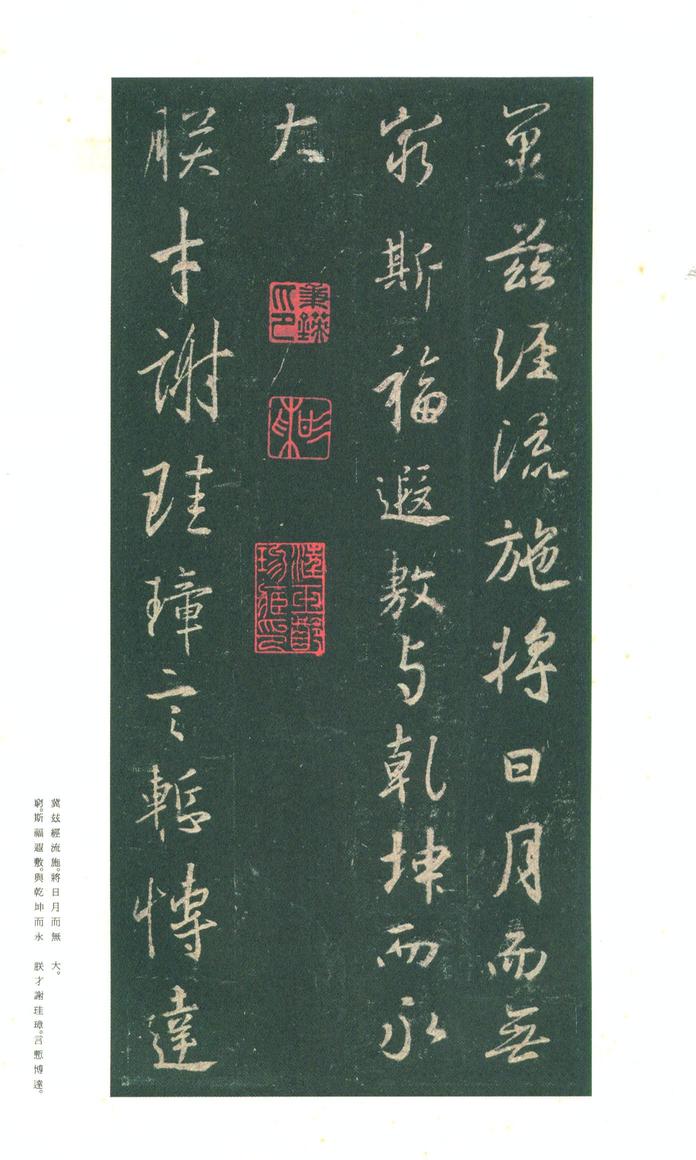 冀茲經流施將日月而無
窮斯福遐敷與乾坤而永
大
朕才謝珪璋言慙博達
冀茲經流施。將日月而無
窮。斯福遐敷。與乾坤而永
大。
朕才謝珪璋。言慙博達。